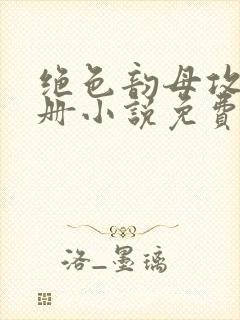 绝色韵母攻
册小说免费
洛_墨璃